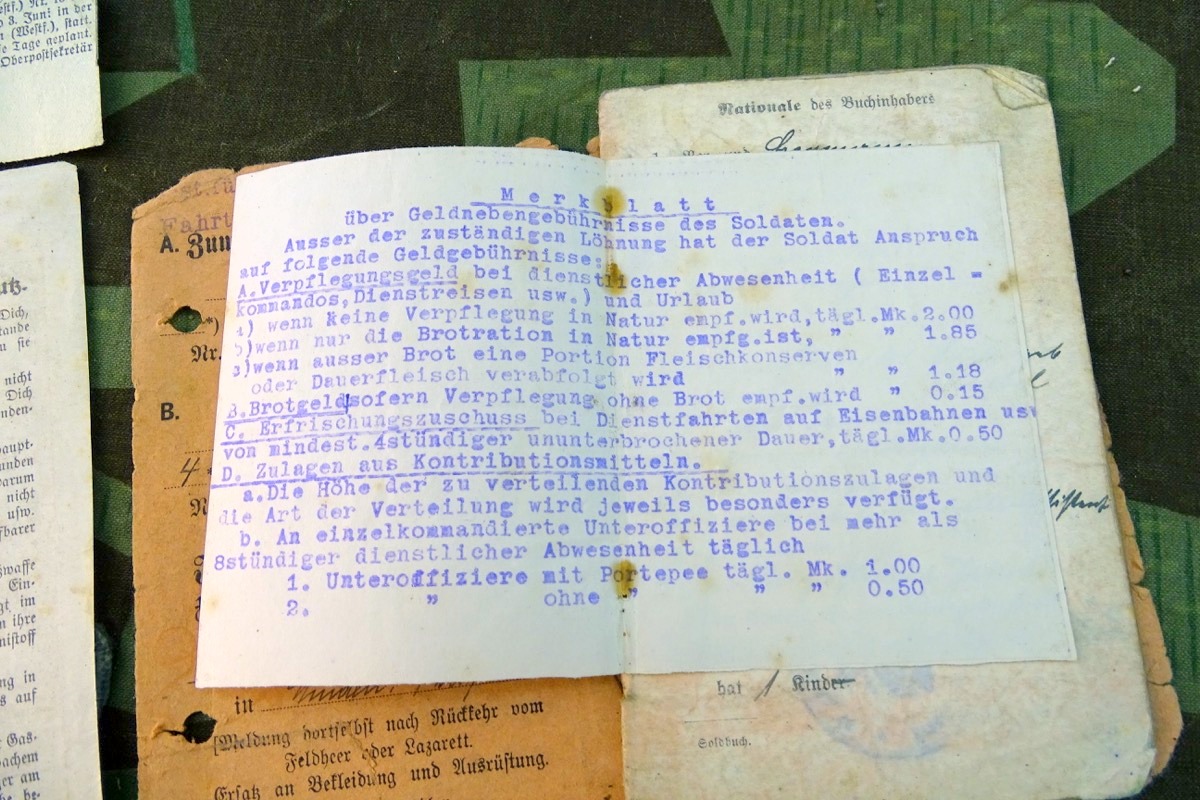 3. Juni in der
(Westf.), statt.
Tage geplant.
Oberpostsekretär
Dich,
stande
nicht
Dich
haupt-
unden
arum
nicht
usw.
fbarer
waffe
Ein-
gt im
ihre
ng in
auf
Gas-
am
be-
A. Zum
Nr.
B.
in
Meldung dortselbst nach Rückkehr vom
Feldheer oder Lazarett.
Ersatz an Bekleidung und Ausrüstung.
Nationale des Buchinhabers
Merkblatt
über Geldnebengebührnisse des Soldaten.
Ausser der zuständigen Löhnung hat der Soldat Anspruch
auf folgende Geldgebührnisse:
A.Verpflegungsgeld bei dienstlicher Abwesenheit ( Einzel =
kommandos,Dienstreisen usw.) und Urlaub
1) wenn keine Verpflegung in Natur empf.wird,tägl.Mk.2.00
2)wenn nur die Brotration in Natur empfg.ist, " " 1.85
3)wenn ausser Brot eine Portion Fleischkonserven
oder Dauerfleisch verabfolgt wird " " 1.18
B.Brotgeld sofern Verpflegung ohne Brot empf.wird " 0.15
C. Erfrischungszuschuss bei Dienstfahrten auf Eisenbahnen usw
von mindest.4stündiger ununterbrochener Dauer,tägl.Mk.0.50
D. Zulagen aus Kontributionsmitteln.
a.Die Höhe der zu verteilenden Kontributionszulagen und
die Art der Verteilung wird jeweils besonders verfügt.
b. An einzelkommandierte Unteroffiziere bei mehr als
8stündiger dienstlicher Abwesenheit täglich
1. Unteroffiziere mit Portepee tägl. Mk. 1.00
2. " ohne " " " 0.50
hat 1 Kinder
Soldbuch.